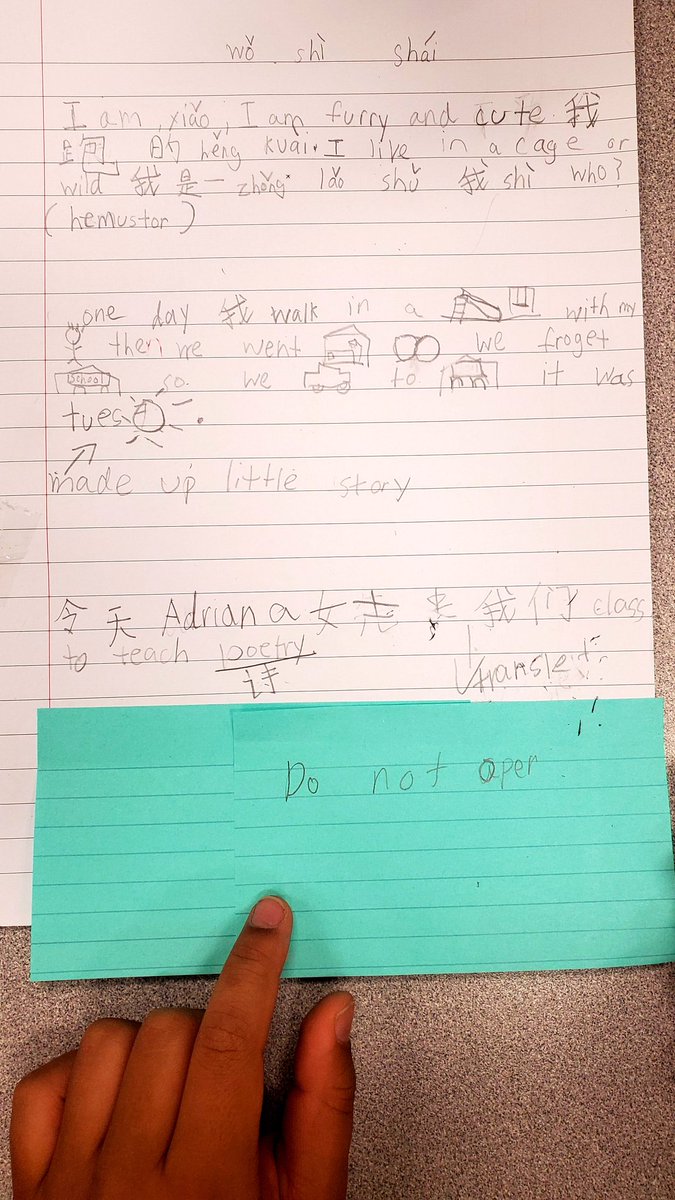 wǒ shì shéi
I am xiǎo, I am furry and cute 我
跑 的 hěng kuài. I live in a cage or
wild 我 是 一 zhǒng lǎo shǔ 我 shì who?
(hemustor)
one day 我 walk in a with my
then we went we froget
School so we to it was
tues
made up little story
今 天 Adriana 女 来 我 们 class
to teach poetry
诗
translet
Do not open